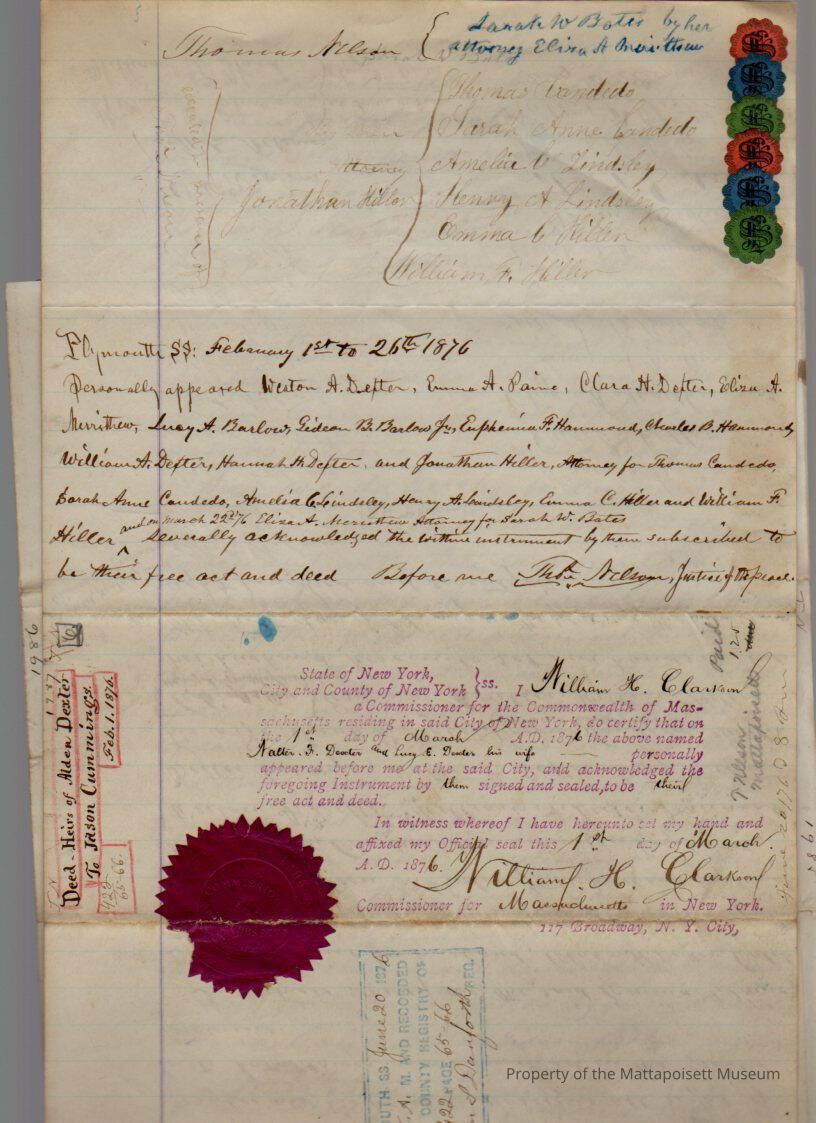 Sarah W Bates by her
Thomas Nelson { attorney Eliza A Merrithew
Thomas Candedo
Sarah Anne Candedo
Attorney Amelia C Lindsley
Jonathan Hiller Henry A Lindsley
Emma C Hiller
William F. Hiller
Plymouth SS: February 1st to 26th 1876
Personally appeared Weston A. Dexter, Emma A. Paine, Clara H. Dexter, Eliza A.
Merrithew, Lucy A. Barlow, Gideon B. Barlow Jr., Euphemia F. Hammond, Charles B. Hammond,
William A. Dexter, Hannah H. Dexter, and Jonathan Hiller, Attorney for Thomas Candedo,
Sarah Anne Candedo, Amelia C. Lindsley, Henry A. Lindsley, Emma C. Hiller and William F.
and on March 22d 76 Eliza A. Merrithew Attorney for Sarah W. Bates
Hiller ^ severally acknowledged the within instrument by them subscribed to
be their free act and deed Before me Thos. Nelson, Justice of the peace.
State of New York,
City and County of New York } ss. I William H. Clarkson
a Commissioner for the Commonwealth of Mas-
sachusetts residing in said City of New York, do certify that on
the 1st day of March A.D. 1876 the above named
Walter F. Dexter and Lucy E. Dexter his wife personally
appeared before me at the said City, and acknowledged the
foregoing Instrument by them signed and sealed, to be their
free act and deed.
In witness whereof I have hereunto set my hand and
affixed my Official seal this 1st day of March.
A.D. 1876. William H. Clarkson
Commissioner for Massachusetts in New York.
117 Broadway, N. Y. City,
Deed - Heirs of Alden Dexter
To Jason Cummings.
Feb. 1. 1876.
422
65-66.
1986
Paid
1.25
T Nelson
Mattapoisett
UTH SS June 20 1876
A. M. AND RECORDED
COUNTY REGISTRY OF
422 PAGE 65-66
Danforth REG.
Property of the Mattapoisett Museum